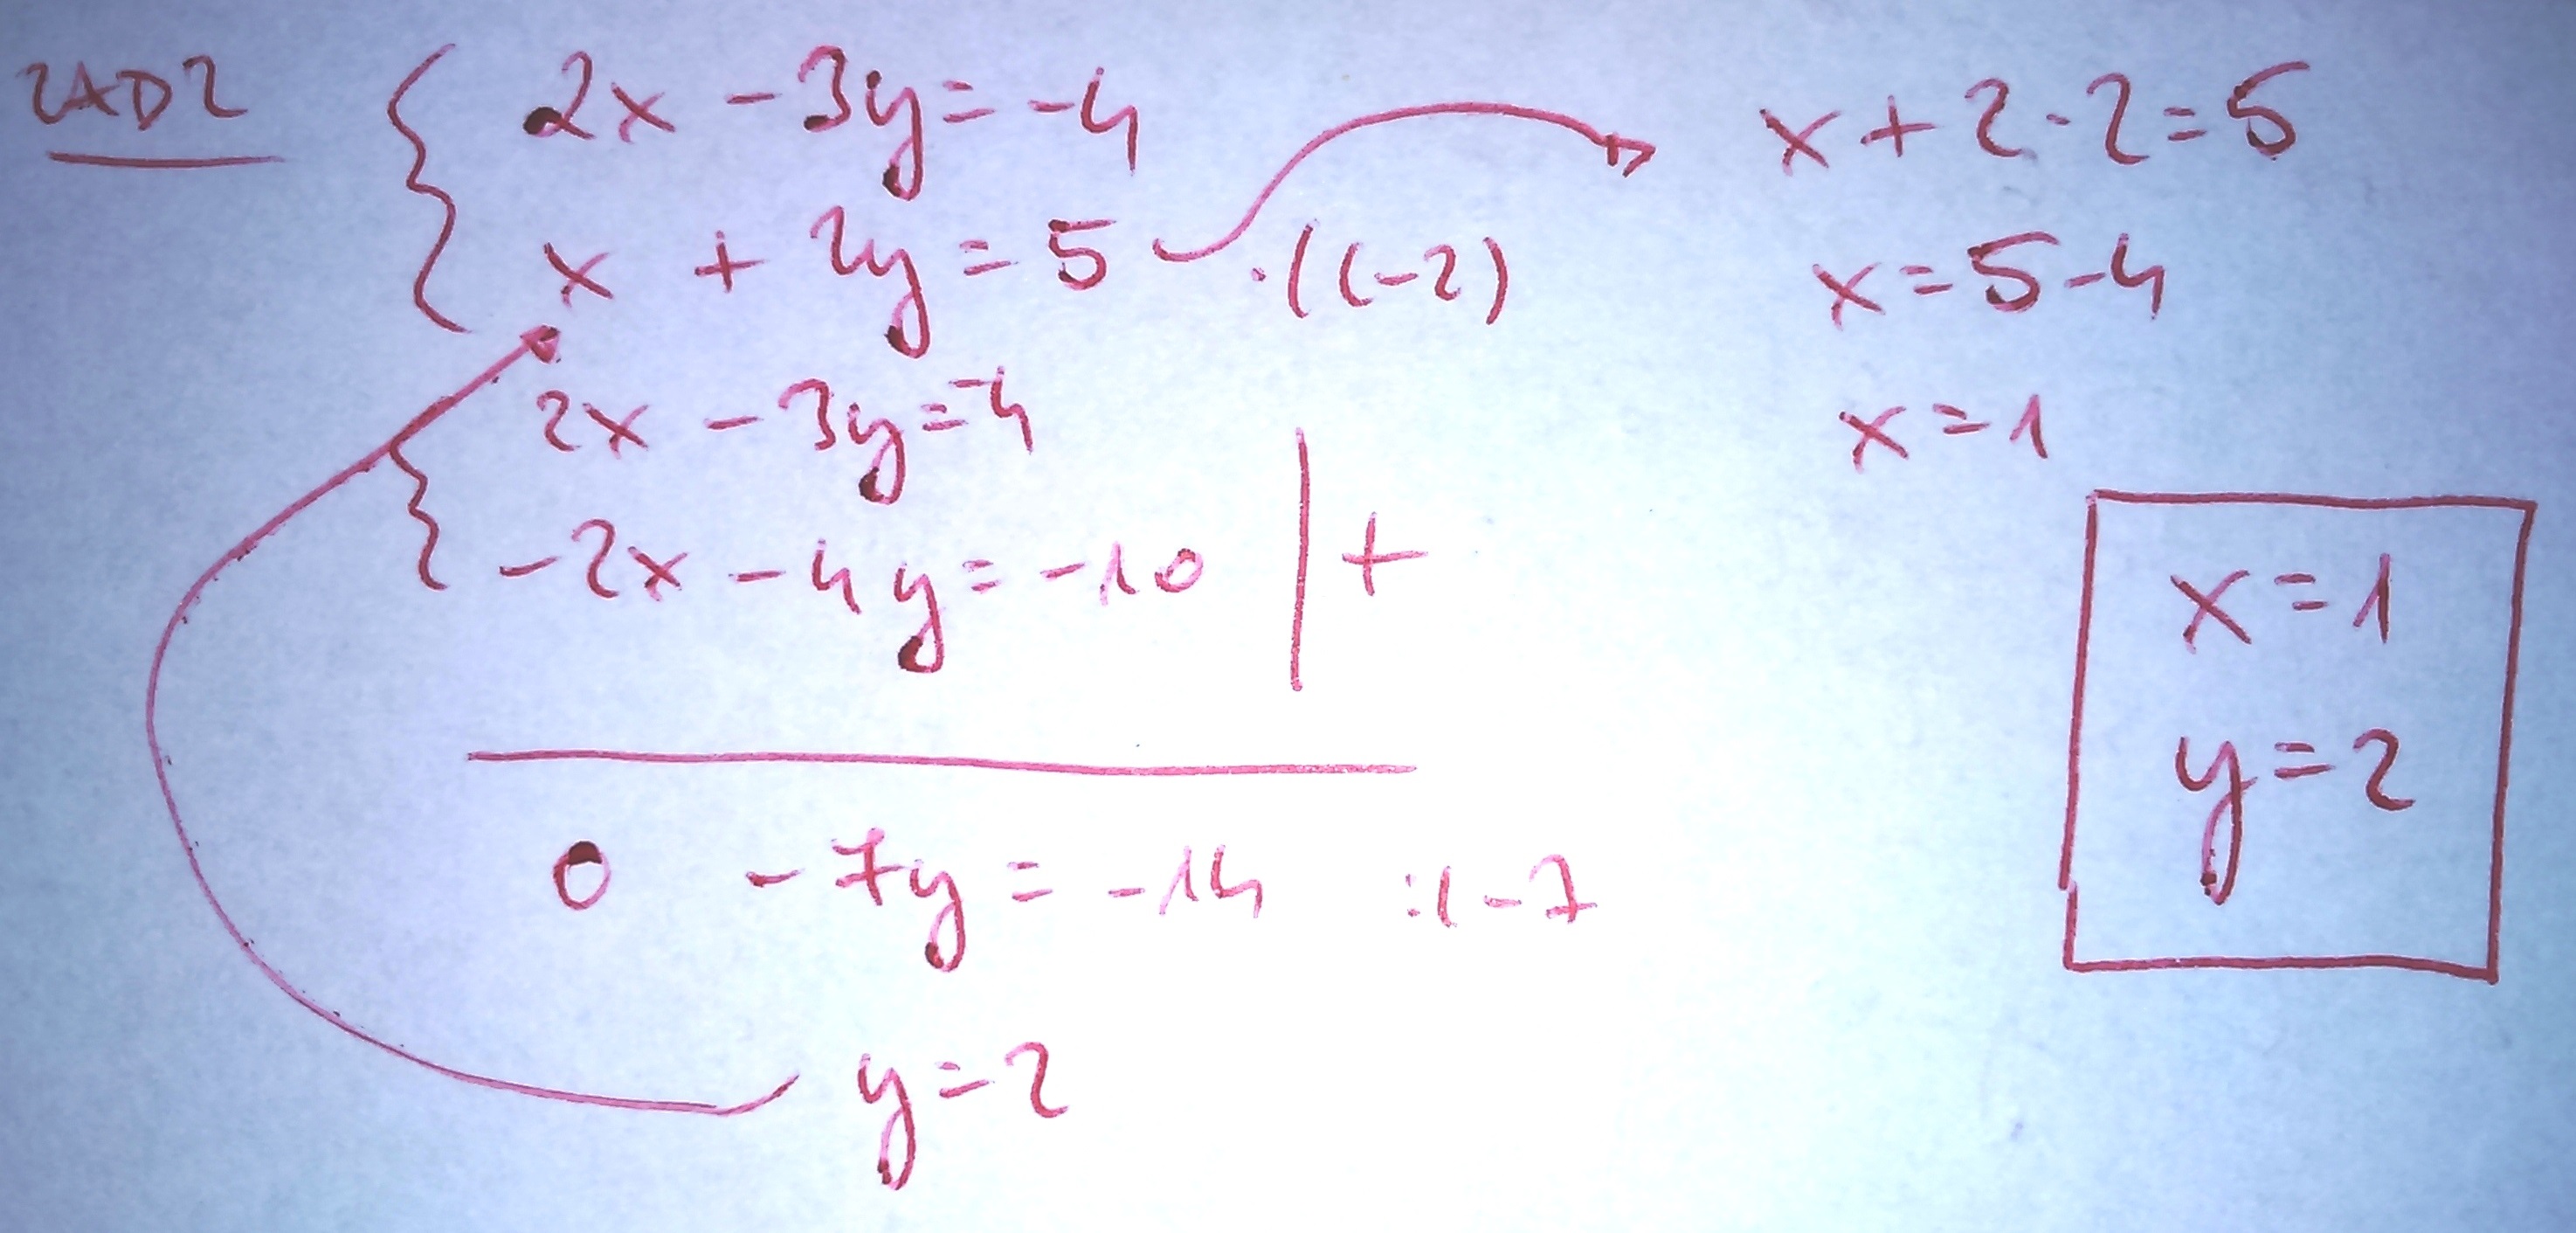 ZAD2
2x - 3y = -4
x + 2y = 5 ·((-2)
2x - 3y = -4
-2x - 4y = -10 | +
0 - 7y = -14 :(-7
y = 2
x + 2·2 = 5
x = 5 - 4
x = 1
x = 1
y = 2